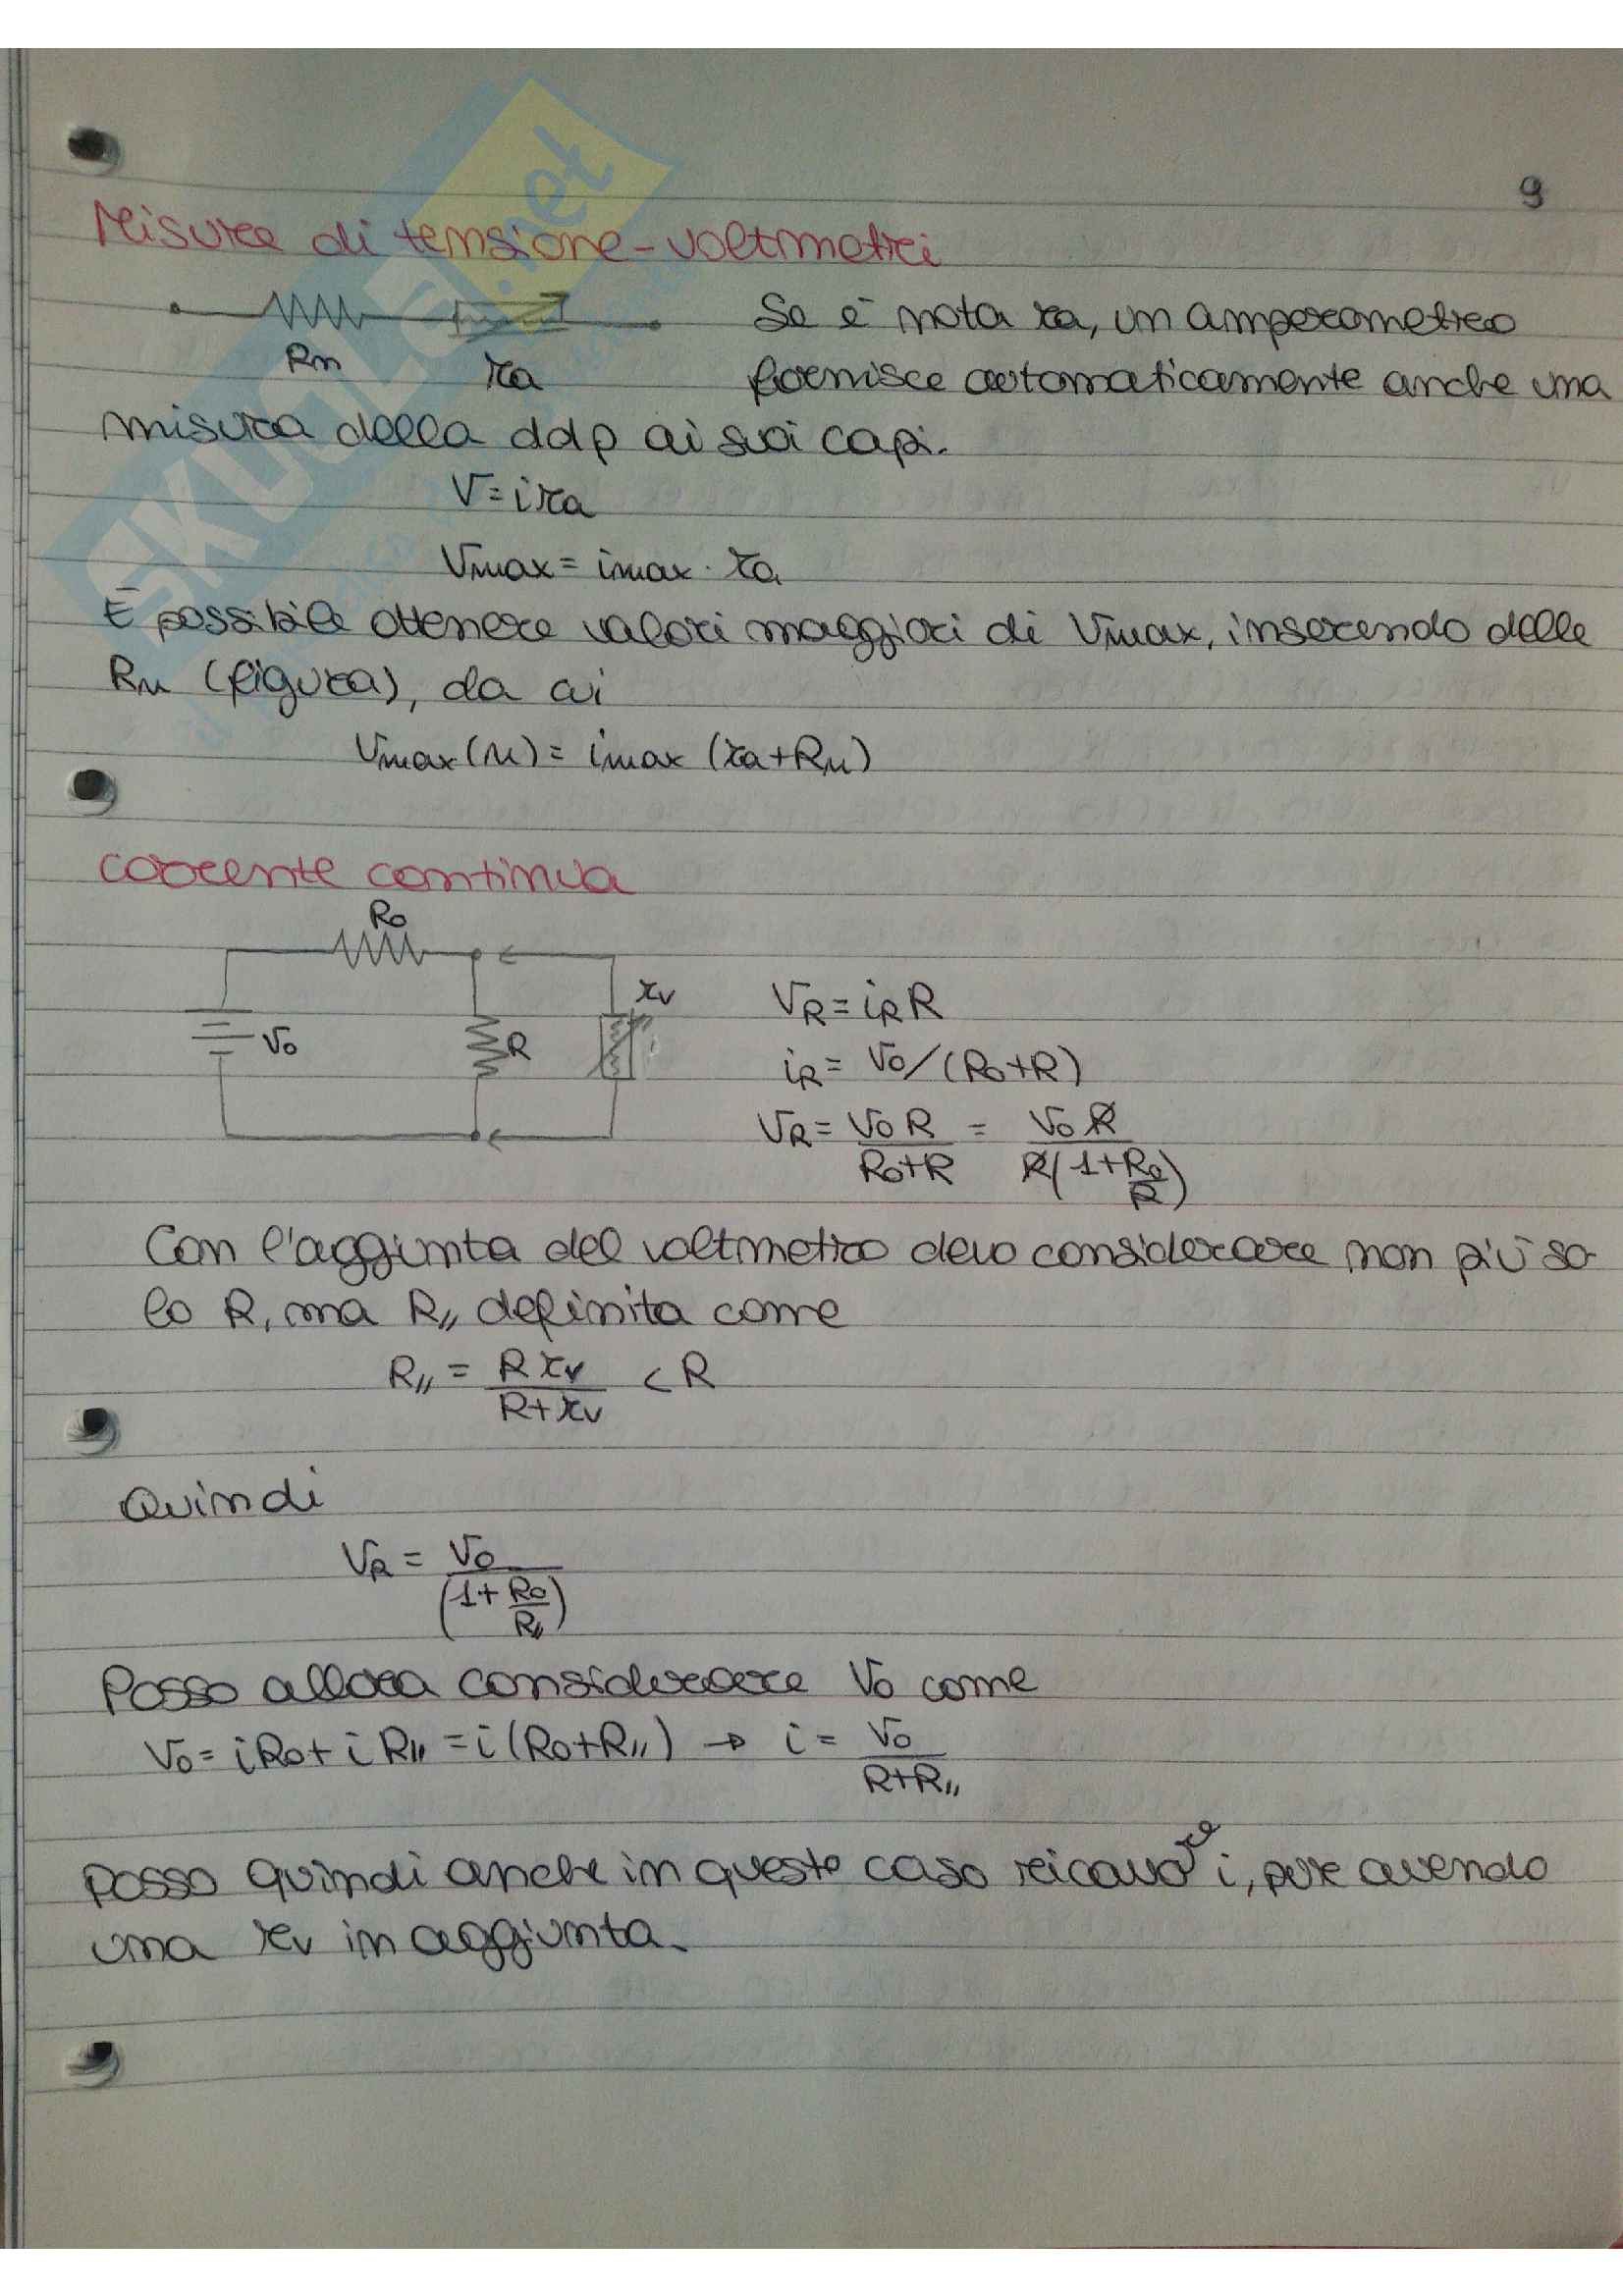 9
Misure di tensione - voltmetri
Se è nota ra, un amperometro
Rn ra
fornisce automaticamente anche una
misura della ddp ai suoi capi.
V = i ra
Vmax = imax · ra
È possibile ottenere valori maggiori di Vmax, inserendo delle
Rn (figura), da cui
Vmax(n) = imax (ra+Rn)
corrente continua
R0
rv
V0
R
VR = iR R
iR = V0/(R0+R)
VR = V0 R / R0+R = V0 R / R(1+R0/R)
Con l'aggiunta del voltmetro devo considerare non più so
lo R, ma R// definita come
R// = R rv / R+rv < R
Quindi
VR = V0 / (1+R0/R//)
Posso allora considerare V0 come
V0 = iR0 + iR// = i(R0+R//) → i = V0 / R+R//
Posso quindi anche in questo caso ricavare i, pur avendo
una rv in aggiunta.
SKUOLA.net